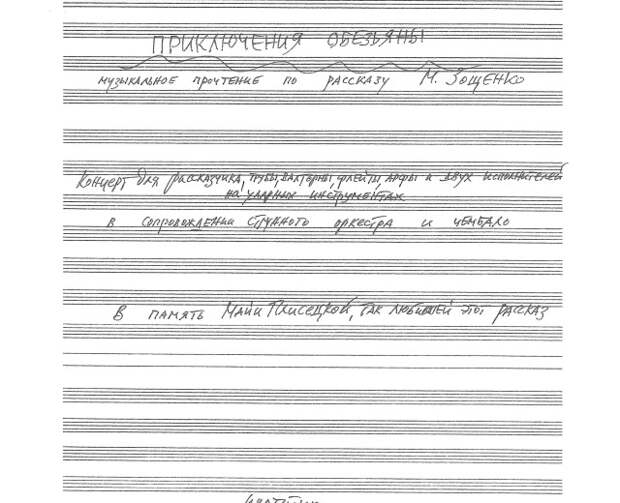 ПРИКЛЮЧЕНИЯ ОБЕЗЬЯНЫ
музыкальное прочтение по рассказу М. Зощенко
Концерт для рассказчика, трубы, валторны, флейты, арфы и двух исполнителей
на ударных инструментах
в сопровождении струнного оркестра и чембало
В память Майи Плисецкой, так любившей этот рассказ